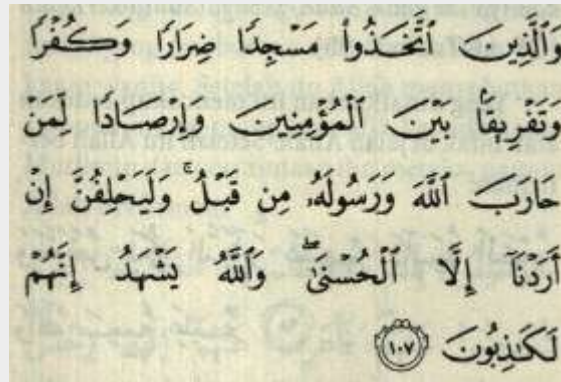 وَالَّذِينَ اتَّخَذُوا۟ مَسْجِدًا ضِرَارًا وَكُفْرًا
وَتَفْرِيقًۢا بَيْنَ الْمُؤْمِنِينَ وَإِرْصَادًا لِّمَنْ
حَارَبَ اللَّهَ وَرَسُولَهُۥ مِن قَبْلُ ۚ وَلَيَحْلِفُنَّ إِنْ
أَرَدْنَآ إِلَّا الْحُسْنَىٰ ۖ وَاللَّهُ يَشْهَدُ إِنَّهُمْ
لَكَٰذِبُونَ ١٠٧